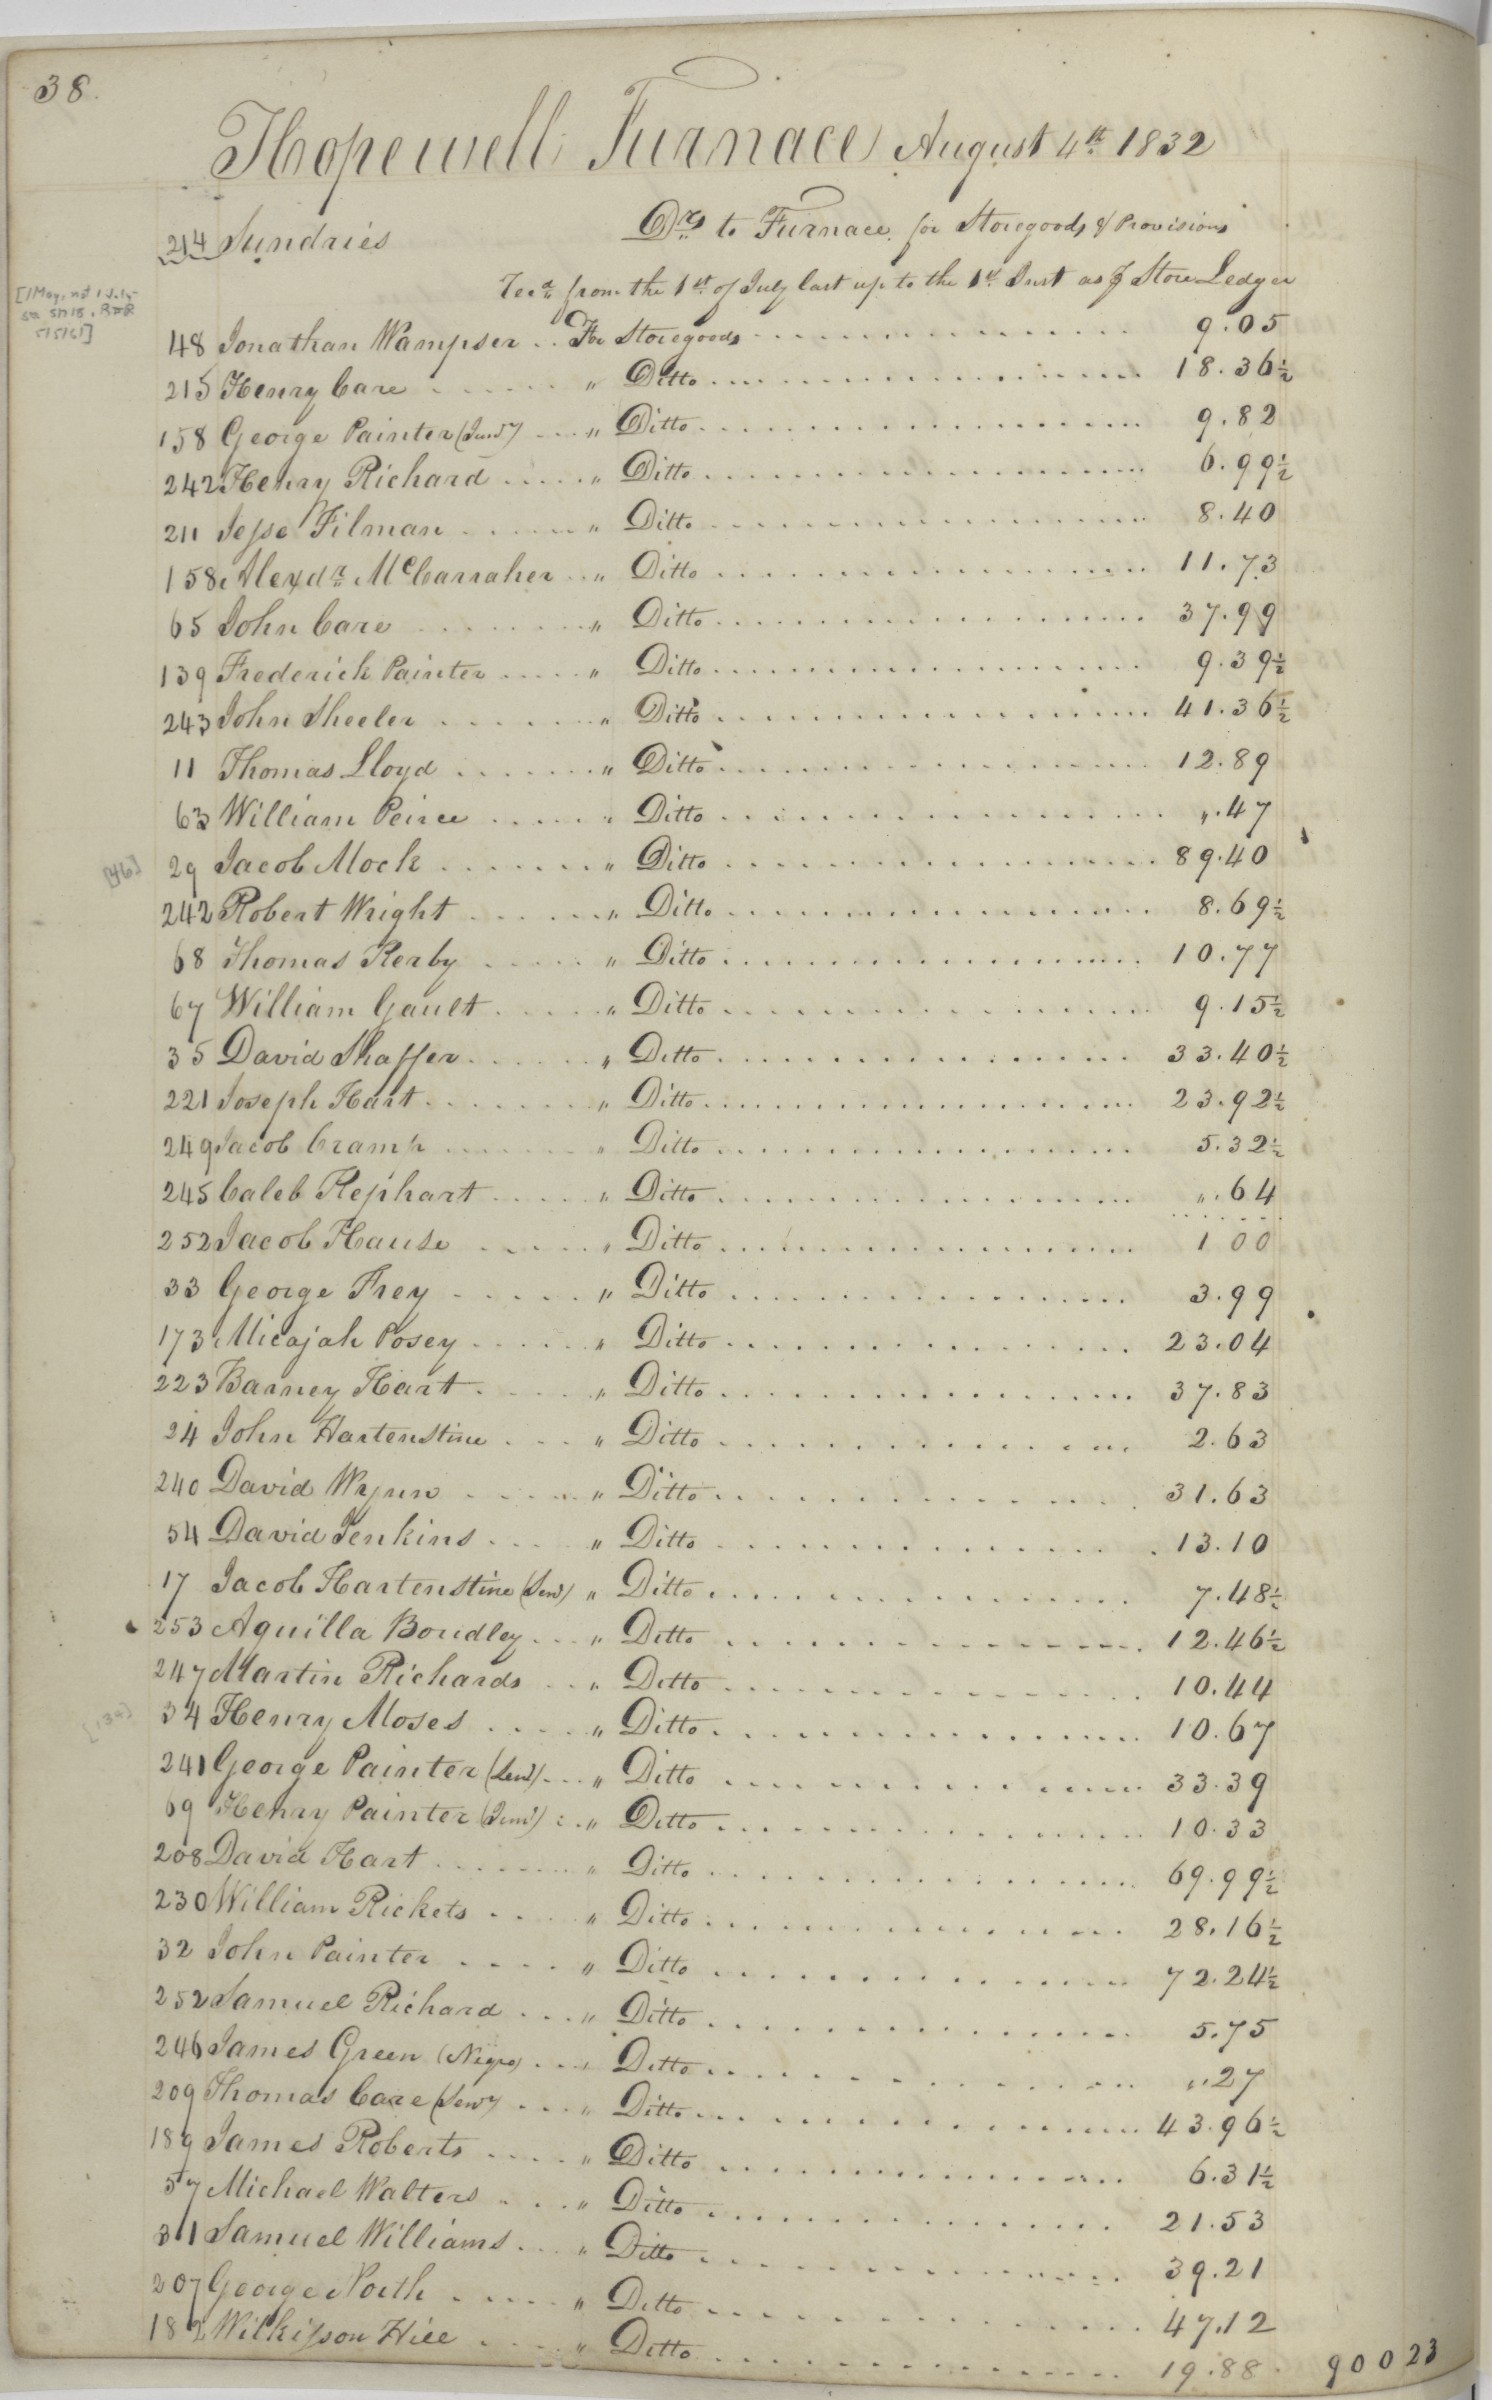 38.
Hopewell Furnace August 4th 1832
214 Sundries Drs to Furnace for Storegoods & Provisions
Recd from the 1st of July last up to the 1st Inst as p Store Ledger
[1 May, not 1 July
5/5/61]
148 Jonathan Wampser .. For Storegoods 9.05
215 Henry Care " Ditto 18.36½
158 George Painter (Junr) " Ditto 9.82
242 Henry Richard " Ditto 6.99½
211 Jesse Filman " Ditto 8.40
158 Alexdr McCarraher " Ditto 11.73
65 John Care " Ditto 37.99
139 Frederick Painter " Ditto 9.39½
243 John Sheeler " Ditto 41.36½
11 Thomas Lloyd " Ditto 12.89
63 William Peirce " Ditto ".47
[46] 29 Jacob Mock " Ditto 89.40
242 Robert Wright " Ditto 8.69½
68 Thomas Kerby " Ditto 10.77
67 William Gault " Ditto 9.15½
35 David Shaffer " Ditto 33.40½
221 Joseph Hart " Ditto 23.92½
249 Jacob Cramp " Ditto 5.32½
245 Caleb Kephart " Ditto ".64
252 Jacob Hause " Ditto 1 00
33 George Frey " Ditto 3.99
173 Micajah Posey " Ditto 23.04
223 Barney Hart " Ditto 37.83
24 John Hartenstine " Ditto 2.63
240 David Wynn " Ditto 31.63
54 David Jenkins " Ditto 13.10
17 Jacob Hartenstine (Senr) " Ditto 7.48½
253 Aquilla Boudley " Ditto 12.46½
247 Martin Richards " Ditto 10.44
34 Henry Moses " Ditto 10.67
241 George Painter (Senr) " Ditto 33.39
69 Henry Painter (Junr) " Ditto 10.33
208 David Hart " Ditto 69.99½
230 William Rickets " Ditto 28.16½
32 John Painter " Ditto 72.24½
252 Samuel Richard " Ditto 5.75
246 James Green (Negro) " Ditto ".27
209 Thomas Care (Senr) " Ditto 43.96½
189 James Roberts " Ditto 6.31½
57 Michael Walters " Ditto 21.53
311 Samuel Williams " Ditto 39.21
207 George North " Ditto 47.12
182 Wilkisson Hill " Ditto 19.88 900 23